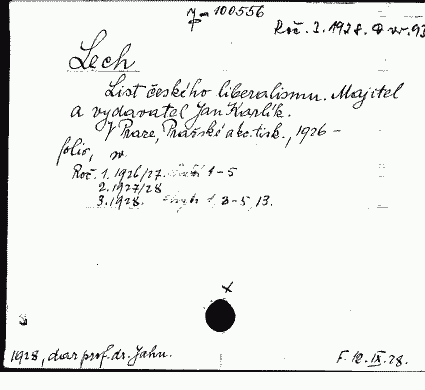 J-100556
Roč. 3. 1928. D nr. 93
Lech
List českého liberalismu. Majitel
a vydavatel Jan Karlík.
V Praze, Pražské akc. tisk., 1926 -
folio,
Roč. 1. 1926/27. 1-5
2. 1927/28
3. 1928. chybí 1, 3-5, 13.
x
1928, dar prof. dr. Jahn.
F. 12. IX. 28.